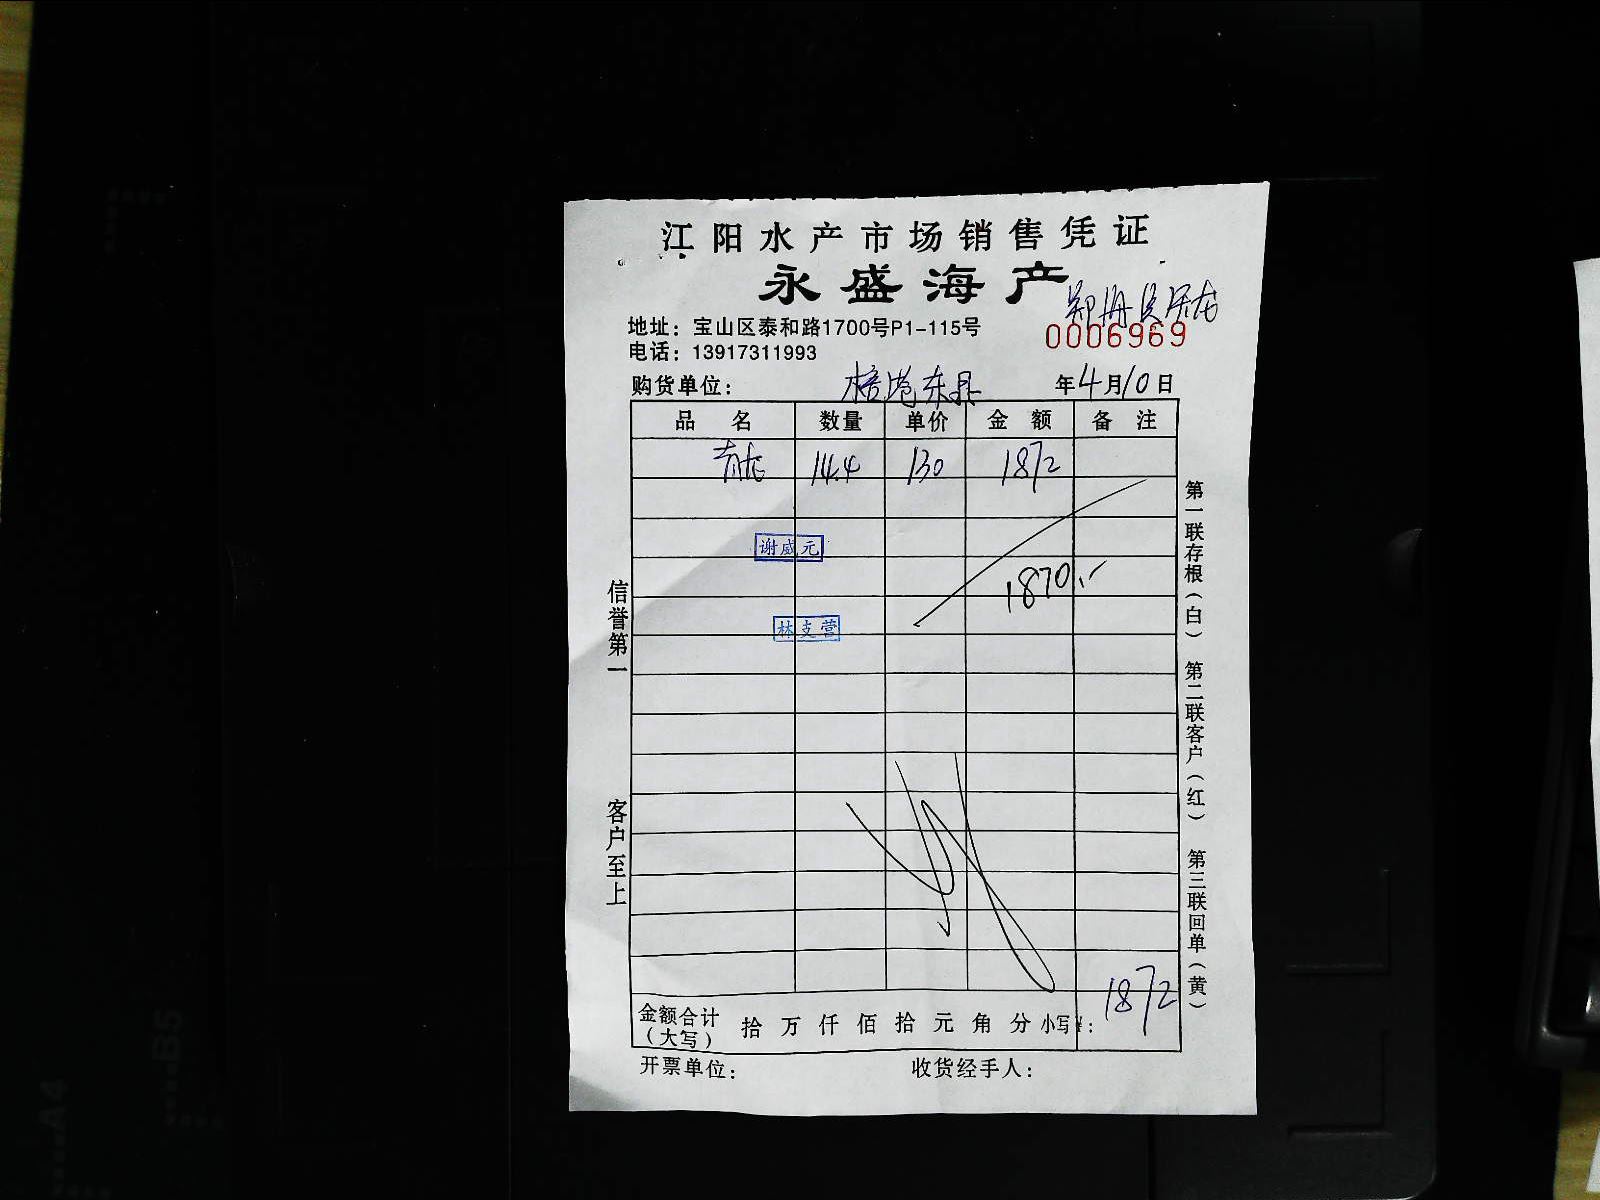 江阳水产市场销售凭证
永盛海产
地址：宝山区泰和路1700号P1-115号
0006969
电话：13917311993
购货单位： 年4月10日
品 名 数量 单价 金 额 备 注
14.4 130 1872
谢盛元
1870.-
林支营
信誉第一
客户至上
第一联存根（白） 第二联客户（红） 第三联回单（黄）
金额合计（大写） 拾 万 仟 佰 拾 元 角 分 小写¥： 1872
开票单位： 收货经手人：